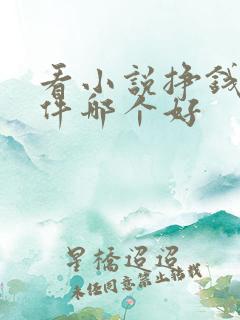 看小说挣钱
件哪个好
星橋迢迢
未经同意禁止转载